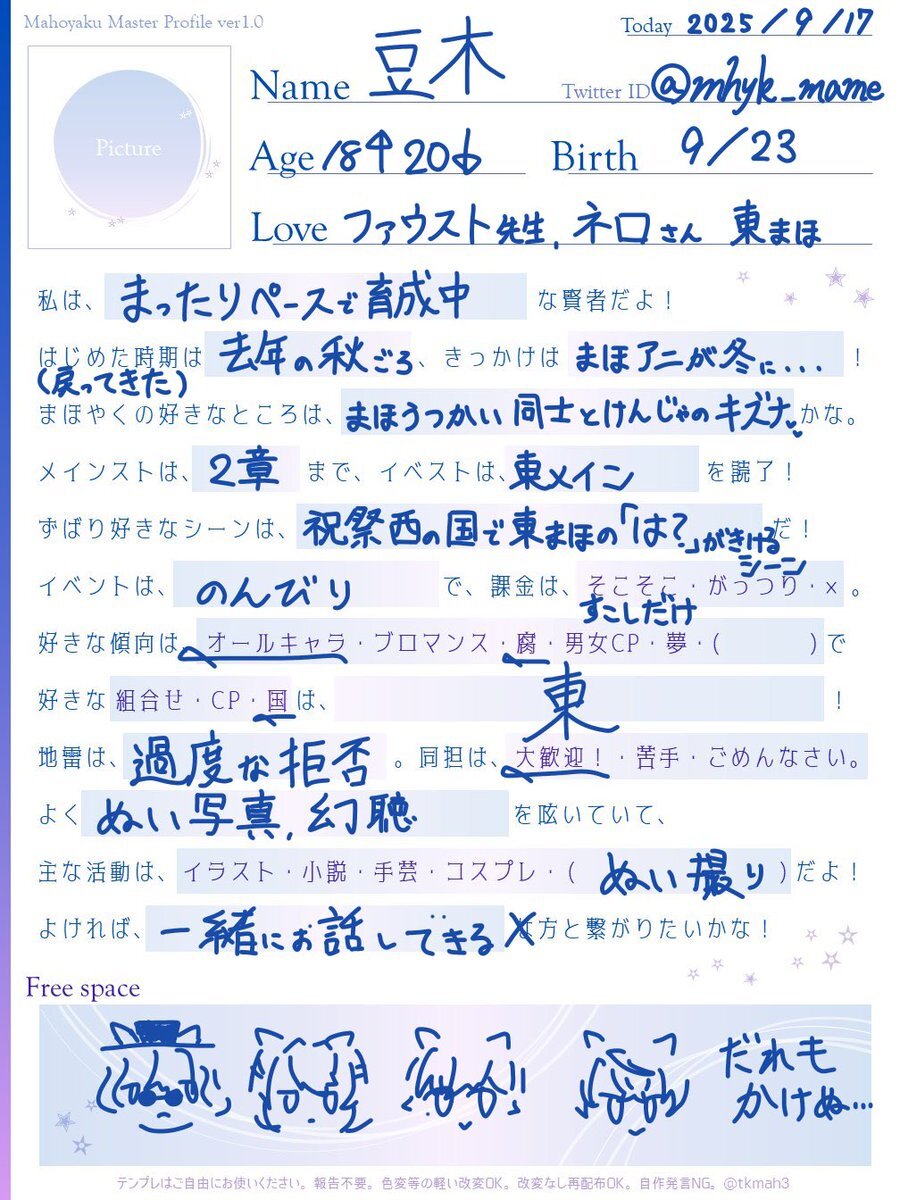 Mahoyaku Master Profile ver1.0
Today 2025/9/17
Picture
Name 豆木
Twitter ID @mhyk_mame
Age 18↑20↓ Birth 9/23
Love ファウスト先生, ネロさん 東まほ
私は、まったりペースで育成中な賢者だよ！
はじめた時期は去年の秋ごろ、きっかけはまほアニが冬に...！
(戻ってきた)
まほやくの好きなところは、まほうつかい同士とけんじゃのキズナかな。
メインストは、2章まで、イベストは、東メインを読了！
ずばり好きなシーンは、祝祭西の国で東まほの「は?」がきけるシーンだ！
イベントは、のんびりで、課金は、そこそこ・がっつり・×。
すこしだけ
好きな傾向は、オールキャラ・ブロマンス・腐・男女CP・夢・(　　　)で
好きな組合せ・CP・国は、東！
地雷は、過度な拒否。同担は、大歓迎！・苦手・ごめんなさい。
よくぬい写真,幻聴を呟いていて、
主な活動は、イラスト・小説・手芸・コスプレ・(ぬい撮り)だよ！
よければ、一緒にお話しできるな方と繋がりたいかな！
Free space
だれも
かけぬ...
テンプレはご自由にお使いください。報告不要。色変等の軽い改変OK。改変なし再配布OK。自作発言NG。@tkmah3